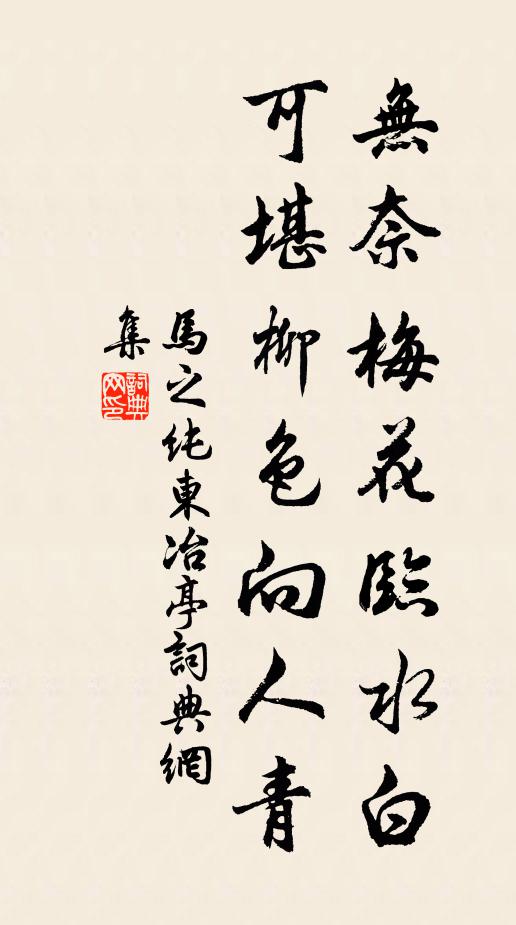 無奈梅花臨水白
可堪柳色向人青
馬之純東冶亭詞典網
集
詞典
网印